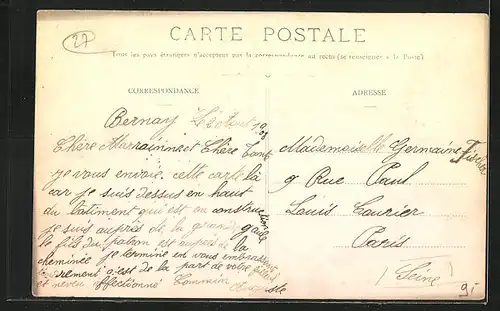 27
CARTE POSTALE
Tous les pays étrangers n'acceptent pas la correspondance au recto (se renseigner à la Poste)
CORRESPONDANCE
ADRESSE
Bernay
Chère Marrainne et Chère
je vous envoie cette carte là
car je suis dessus en haut
du batiment qui est en construction
je suis auprès de la grande
le fils du patron est auprès de la
cheminée je termine en vous embrassant
de la part de votre
et neveu affectionné
Mademoiselle Germaine Fischer
9 Rue Paul
Louis Courier
Paris
(Seine)
9-